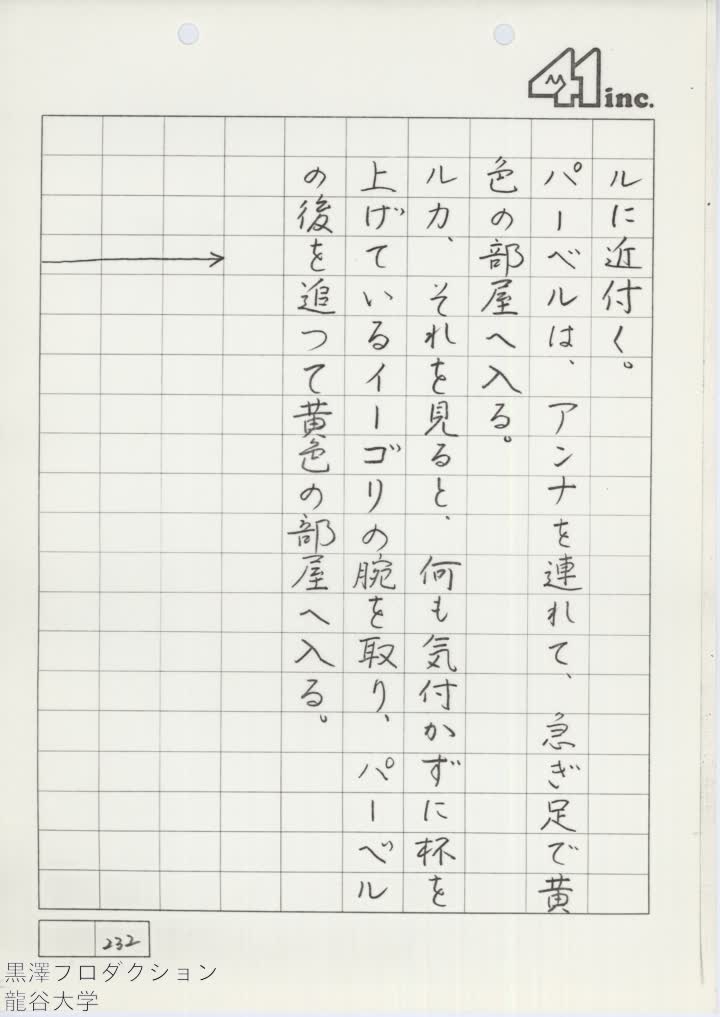 41 inc.
ルに近付く。
パーベルは、アンナを連れて、急ぎ足で黄
色の部屋へ入る。
ルカ、それを見ると、何も気付かずに杯を
上げているイーゴリの腕を取り、パーベル
の後を追つて黄色の部屋へ入る。
232
黒澤フロダクション
龍谷大学